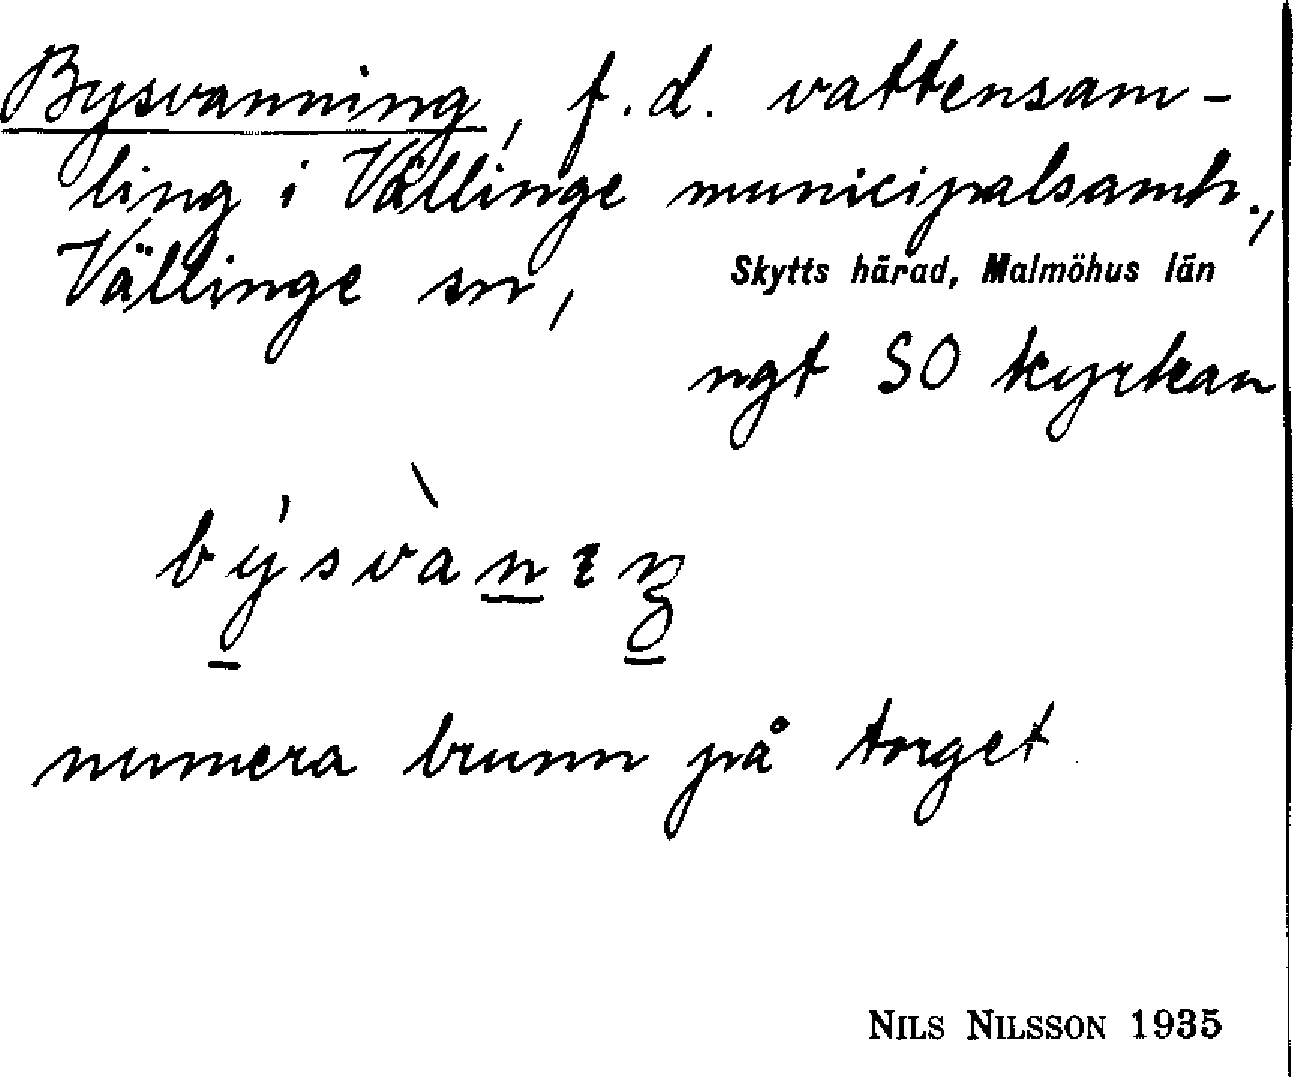 Bysvanning, f.d. vattensam-
ling i Vällinge municipalsamh.,
Vällinge sn, Skytts härad, Malmöhus län
ngt SO kyrkan
býsvànıŋ
numera brunn på torget
NILS NILSSON 1935